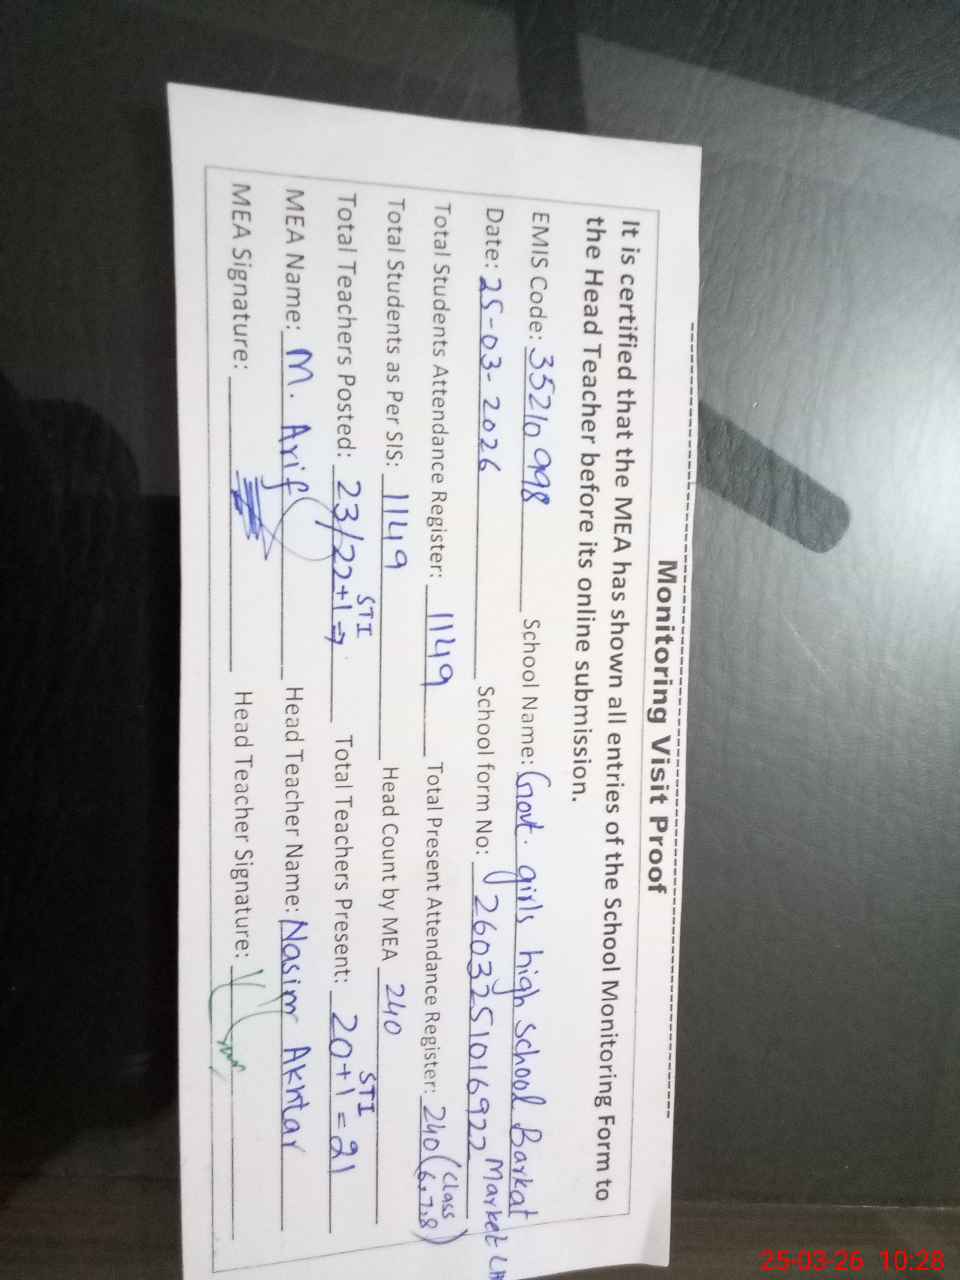 Monitoring Visit Proof
It is certified that the MEA has shown all entries of the School Monitoring Form to
the Head Teacher before its online submission.
EMIS Code: 35210998 School Name: Govt. girls high school Barkat
Market
Date: 25-03-2026 School form No: 2603251016922
Total Students Attendance Register: 1149 Total Present Attendance Register: 240 (Class 6,7,8)
Total Students as Per SIS: 1149 Head Count by MEA 240
Total Teachers Posted: 23/22+1 STI Total Teachers Present: 20+1 STI = 21
MEA Name: M. Arif Head Teacher Name: Nasim Akhtar
MEA Signature: Head Teacher Signature:
25-03-26 10:28